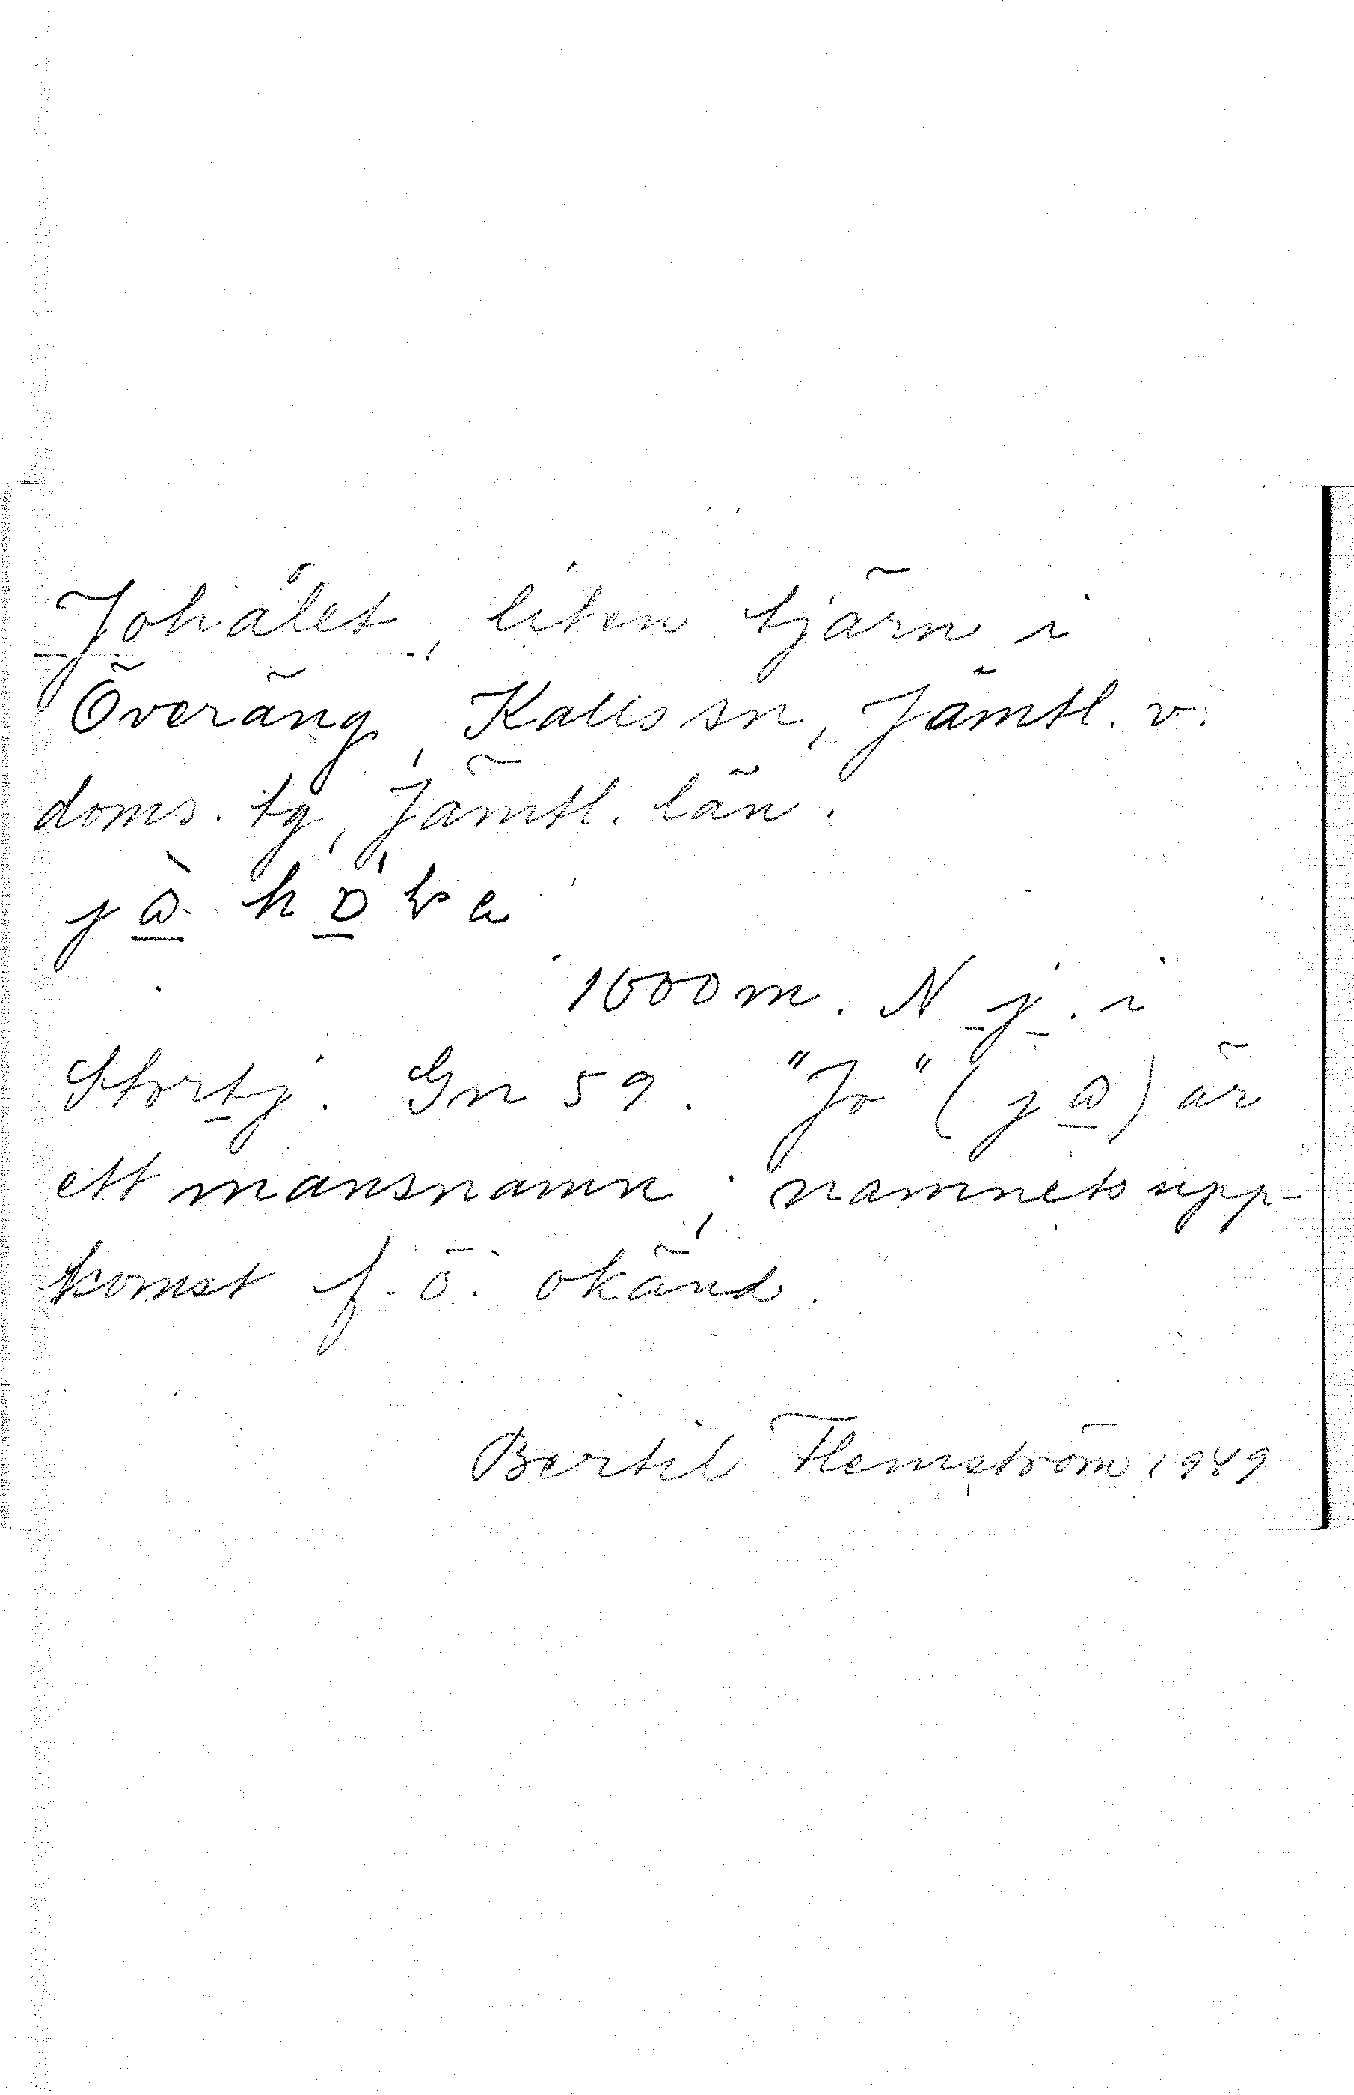 Johålet, liten tjärn i
Överäng, Kalls sn, Jämtl. v.
doms. tg, Jämtl. län.
1600 m. N j. i
Stortj. Gn 59. "Jo" (jɷ) är
ett mansnamn; namnets upp-
komst f. ö. okänd.
Bertil Flemström 1949